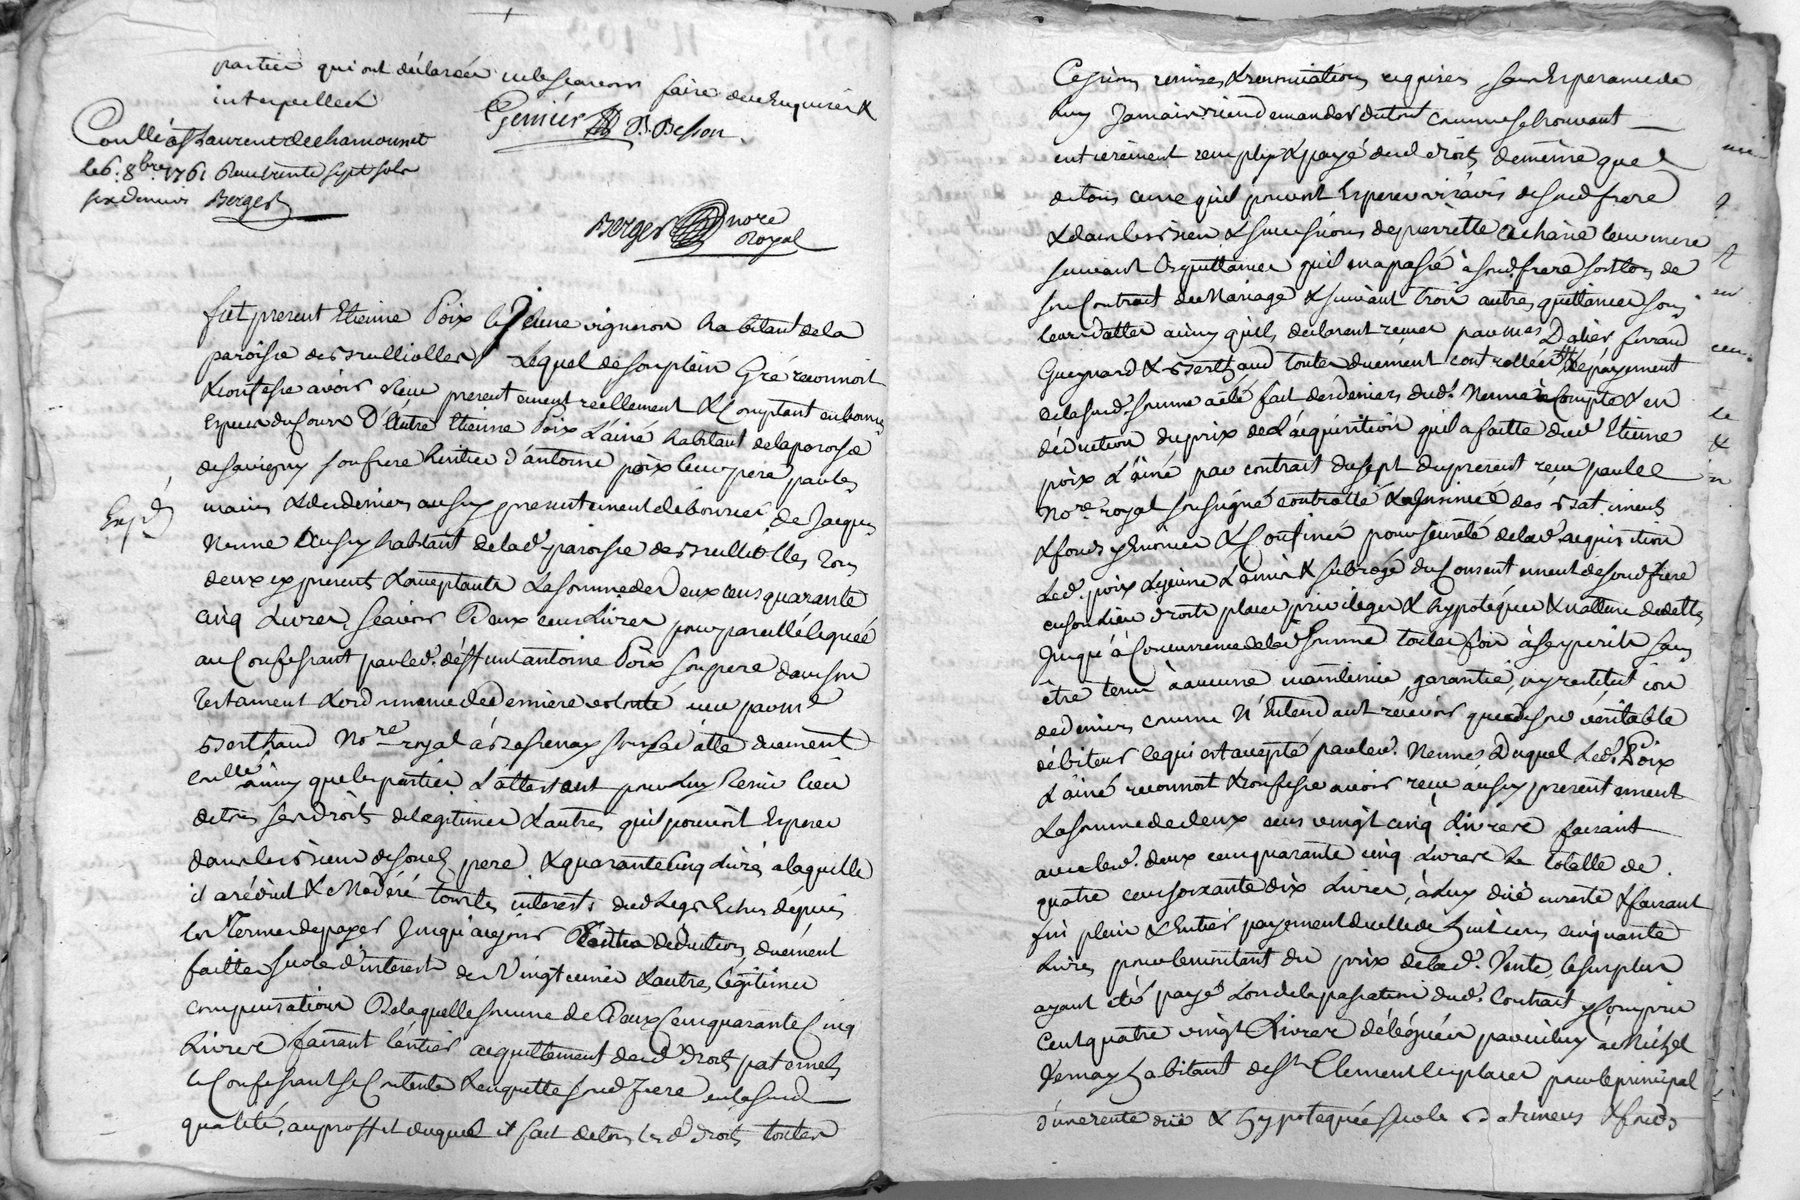 parties qui ont déclarées ne le scavoir faire de ce Enquises &
interpellées
Genier D. Besson
Conllé à St Laurent de chamousset
le 6. 8bre 1761 Reçu trente sept sols
six deniers Berger
Berger nore
Royal
fut present Etienne Poix le Jeune vigneron habitant de la
paroisse des brulliolles, Lequel de son plein Gré reconnoit
& confesse avoir reçu presentement réellement & Comptant en bonnes
Especes du Cours D'Autre Etienne Poix L'ainé habitant de la paroisse
de savigny son frere héritier d'antoine poix leur pere par les
mains & des deniers aussy presentement déboursés de Jacques
Expd
Nenne aussy habitant de lad. paroisse des brulliolles tous
deux icy presents & acceptants La somme de deux cens quarante
cinq Livres, scavoir Deux cens Livres pour pareille léguée
au Confessant par led. déffunt antoine Poix son pere dans son
Testament & ordonnance de derniere volonté reçu par me
Berthaud Nore royal à Bessenay sous sa datte duement
conllé ainsy que les parties L'attestent pour Luy tenir lieu
de tous ses droits de légitimes & autres qu'il pouvoit Esperer
dans les biens de sond. pere, & quarante cinq Livres a laquelle
il a réduit & Modéré tous les interests dud. Legs Echus dépuis
les termes de payer Jusqu'au jour Toutes déductions duement
faittes sur led. interest des Vingtiemes & autres légitimes
compensations De laquelle somme de Deux Cens quarante Cinq
Livres faisant l'entier acquittement desd. droits paternels
le Confessant se Contente & en quitte sond. frere en lasud.
qualité, au proffit duquel il fait de tous lesd. droits toutes
Cessions remises & renonciations requises, sans Esperance de
luy Jamais rien demander du tout comme se trouvant
entierement remply & payé desd. droits de même que
de tous ceux qu'il pouvoit Esperer vis à vis de sond. frere
& dans les biens & successions de pierrette Zacharie leur mere
suivant la quittance qu'il en a passé à sond. frere lors de
son Contrat de Mariage & suivant trois autres quittances sous
leurs dattes ainsy qu'ils déclarent reçues par mes Dalier, ferrand
Guignard & Berthaud toutes duement controllées, le payement
de lasud. somme a été fait des deniers dud. Nenne à Compte & en
déduction du prix de L'acquisition qu'il a faitte dud. Etienne
poix L'ainé par contrat du sept du present reçu par le
Nore royal soussigné controllé & insinué des batiments
& fonds y Enoncés & Confinés pour seureté de lad. acquisition
Led. poix Le jeune L'a mis & subrogé du Consentement de sond. frere
en son Lieu droits place privileges & hypoteques & nature de dette
Jusqu'à Concurrence de lad. somme toutes fois à ses perils sans
être tenu à aucune maintenue, garantie, ny restitution
de deniers comme N'Entendant recevoir que de son véritable
débiteur ce qui est accepté par led. Nenne, Duquel Led. Poix
L'ainé reconnoit & confesse avoir reçu aussy presentement
La somme de deux cens vingt cinq Livres faisant
avec lesd. deux cens quarante cinq Livres le totalle de
quatre cens soixante dix Livres, à Luy düe en reste & faisant
fin plein & Entier payement de celle de huit cens cinquante
Livres pour le montant du prix de lad. Vente, le surplus
ayant été payé Lors de la passation dud. Contrat y Compris
Cent quatre vingt Livres déléguées par iceluy à Michel
Jernay habitant de St Clement les places pour le principal
d'une rente düe & hypotequée sur les batiments & fonds